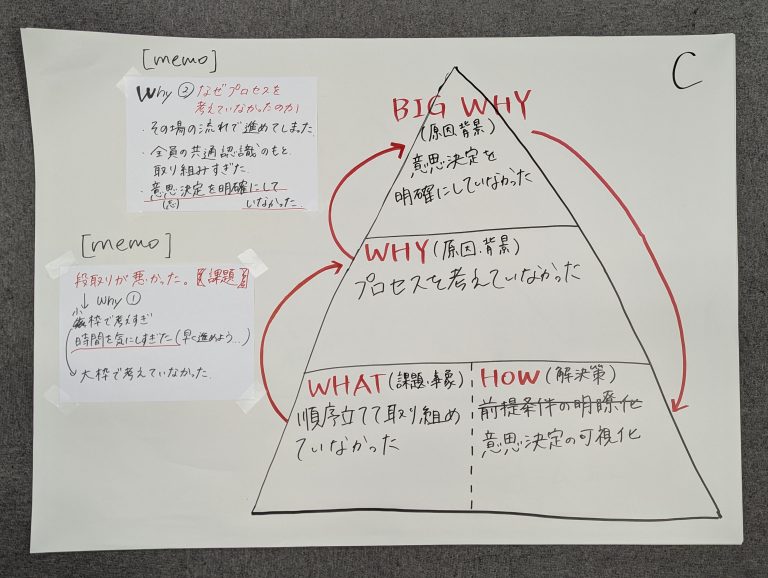 [memo]
Why ② なぜプロセスを
考えていなかったのか
・その場の流れで進めてしまった
・全員の共通認識のもと、
取り組みすぎた
・意思決定を明確にして
(志)
いなかった
[memo]
段取りが悪かった。【課題】
↓ Why ①
小枠で考えすぎ
時間を気にしすぎた(早く進めよう…)
大枠で考えていなかった
C
BIG WHY
(原因.背景)
意思決定を
明確にしていなかった
WHY(原因.背景)
プロセスを考えていなかった
WHAT(課題.事象)
順序立てて取り組め
ていなかった
HOW(解決策)
前提条件の明瞭化
意思決定の可視化